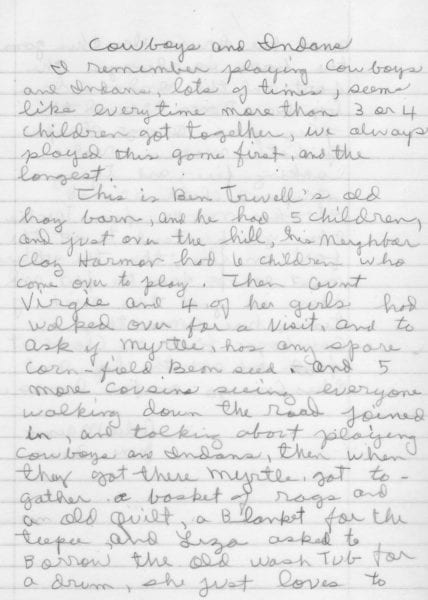 Cowboys and Indans
I remember playing Cowboys
and Indans, lots of times, seems
like everytime more than 3 or 4
Children got together, we always
played this game first, and the
longest.
This is Ben Truvell's old
hay barn, and he had 5 children,
and just over the hill, his Neighbor
Clay Harmon had 6 children who
come over to play. Then Aunt
Virgie and 4 of her girls had
walked over for a visit, and to
ask if Myrtle, has any spare
corn-field Bean seed. and 5
more cousins seeing everyone
walking down the road joined
in, and talking abort playing
Cowboys and Indans, then when
they got there Myrtle, got to-
gather a basket of rags and
an old quilt, a Blanket for the
teepee, and Liza asked to
Borrow the old wash Tub for
a drum, she just loves to